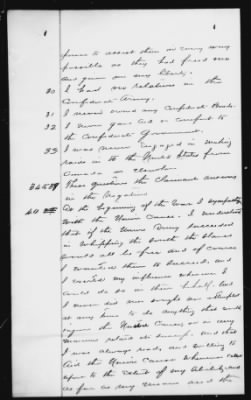 4
power to assist them in every way
possible as they had freed me
and given me my liberty.
30 I had no relatives in the
Confederate Army.
31 I never owned any Confederate Bonds.
32 I never gave aid or comfort to
the Confederate Government.
33 I was never engaged in making
raids in to the United States from
Canada or elsewhere.
These questions the Claimant answers
in the Negative.
40 At the beginning of the war I sympathy
with the Union Cause. I understood
that if the Union Army succeeded
in whipping the South the slaves
would all be free and of course
I wanted them to succeed. and
I exerted my influence wherever I
could do so in their behalf. but
I never did nor sought nor attempt
at any time to do anything that would
injure the Union Cause or in any
manner retard its triumph. and that
I was always ready and willing to
aid the Union Cause whenever called
upon to the extent of my ability, and
as far as my means and the